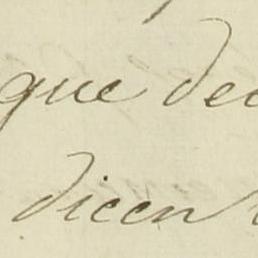 que dec
dicen